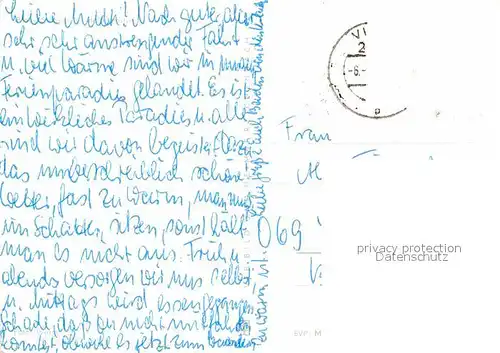 Liebe Mutti! Nach guter, aber
sehr sehr anstrengender Fahrt
u. viel Wärme sind wir in unserem
Ferienparadies gelandet. Es ist
ein wirkliches Paradies u. alle
sind wir davon begeistert. Dazu
das unbeschreiblich schöne
Wetter, fast zu warm, man muß
im Schatten sitzen, sonst hält
man es nicht aus. Früh u.
abends versorgen wir uns selbst
u. mittags wird essengegangen
Schade, daß Du nicht mitfahren
konntest, obwohl es jetzt zum
warm ist.
Liebe Grüße auch
VI
2
-6.-
Frau
M
069
privacy protection
Datenschutz
BVP M